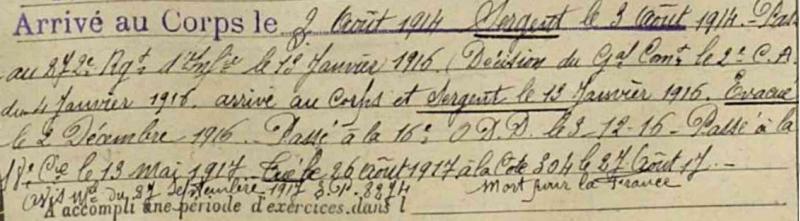 Arrivé au Corps le 3 Août 1914 Sergent le 3 Août 1914 - Passé
au 272e Rgt d'Infie le 10 Janvier 1916 (Décision du Gal Comt le 2e C.A.
du 4 Janvier 1916. arrivé au Corps et Sergent le 13 Janvier 1916. Evacué
le 2 Décembre 1916 - Passé à la 16e D.D. le 3-12-16 - Passé à la
18e Cie le 13 Mai 1917 - Tué le 26 Août 1917 à la Cote 304 le 27 Août 17 -
(avis Mel du 27 septembre 1917 S.P. 8274 Mort pour la France
A accompli une période d'exercices dans l